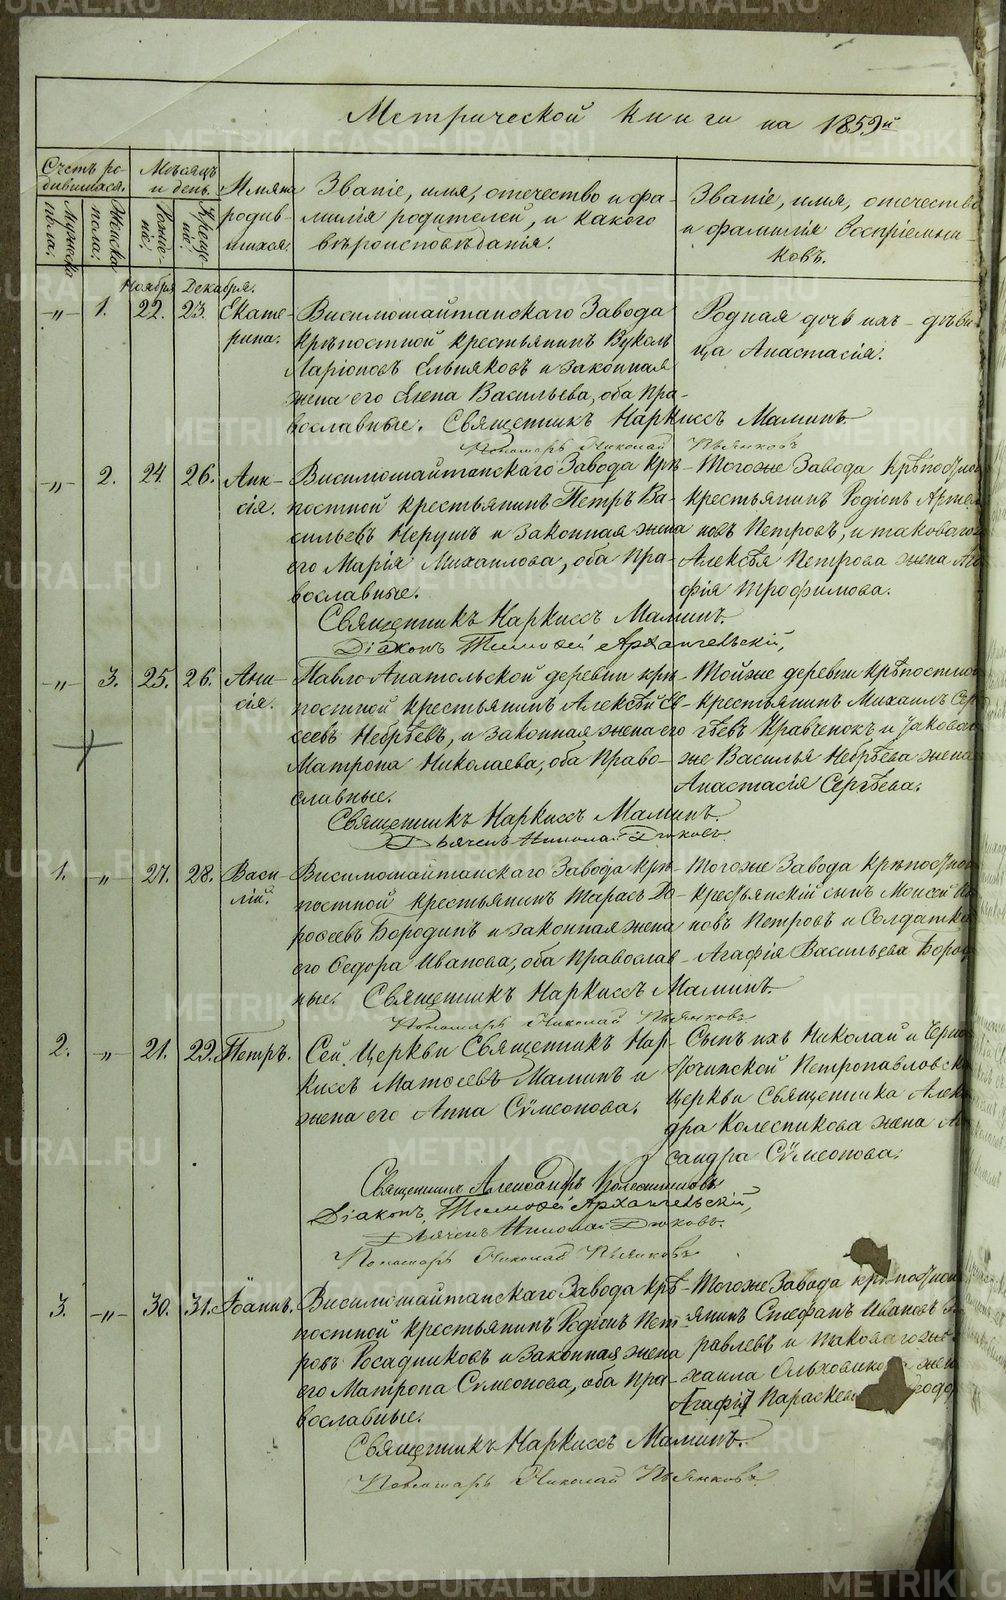 Метрической книги на 1859й
Счетъ ро-
дившихся.
Мужеска
пола.
Женска
пола.
Мѣсяцъ
и день.
Рожде-
нiе.
Креще-
нiе.
Имяна
родив-
шихся.
Званiе, имя, отечество и фа-
милiя родителей, и какого
вѣроисповѣданiя.
Званiе, имя, отечество
и фамилiя воспрiемни-
ковъ.
Ноября Декабря.
-„- 1. 22. 23. Екате-
рина.
Висимошайтанскаго Завода
крѣпостной крестьянинъ Вуколъ
Ларiоновъ Ельняковъ и законная
жена его Елена Васильева, оба пра-
вославные. Священникъ Наркиссъ Маминъ.
Пономарь Николай Пьянковъ
Родная дочь ихъ - дѣви-
ца Анастасiя.
-„- 2. 24. 26. Ани-
сiя.
Висимошайтанскаго Завода крѣ-
постной крестьянинъ Петръ Ва-
сильевъ Нерушъ и законная жена
его Марiя Михаилова, оба пра-
вославные.
Священникъ Наркиссъ Маминъ.
Дiаконъ Тимофей Архангельскiй,
Тогоже Завода крѣпостной
крестьянинъ Родiонъ Артем
новъ Петровъ, и таковагож
Алексѣя Петрова жена Ага
фiя Трофимова.
-„- 3. 25. 26. Ани-
сiя.
Павло Анатольской деревни крѣ-
постной крестьянинъ Алексѣй Ев-
сеевъ Небрѣевъ, и законная жена его
Матрона Николаева, оба право-
славные.
Священникъ Наркиссъ Маминъ.
Дьячекъ Николай Дюковъ
Тойже деревни крѣпостной
крестьянинъ Михаилъ Сер
гѣевъ Кравченокъ и таковаго
же Василья Небрѣева жена
Анастасiя Сергѣева.
1. „ 27. 28. Васи-
лiй.
Висимошайтанскаго Завода крѣ-
постной крестьянинъ Тарасъ До-
рофеевъ Бородинъ и законная жена
его Федора Иванова, оба православ-
ные. Священникъ Наркиссъ Маминъ.
Пономарь Николай Пьянковъ
Тогоже Завода крѣпостной
крестьянскiй сынъ Моисей
новъ Петровъ и Солдатка
Агафiя Васильева Бород
2. -„- 21. 29. Петръ.
Сей Церкви Священникъ Нар-
киссъ Матѳеевъ Маминъ и
жена его Анна Сѵмеонова.
Священникъ Александръ Колесниковъ
Дiаконъ, Тимофей Архангельскiй,
Дьячекъ Николай Дюковъ.
Пономарь Николай Пьянковъ
Сынъ ихъ Николай и Черно
источинской Петропавловск
Церкви Священника Алек
дра Колесникова жена Але
сандра Сѵмеонова.
3. -„- 30. 31. Iоаннъ.
Висимошайтанскаго Завода крѣ-
постной крестьянинъ Родiонъ Пет-
ровъ Росадниковъ и законная жена
его Матрона Сѵмеонова, оба пра-
вославные.
Священникъ Наркиссъ Маминъ.
Пономарь Николай Пьянковъ
Тогоже Завода крѣпостной
янинъ Стефанъ Ивановъ
равлевъ и таковагоже
хаила Ольховиков жен
Агафiя Параскев
METRIKI.GASO-URAL.RU